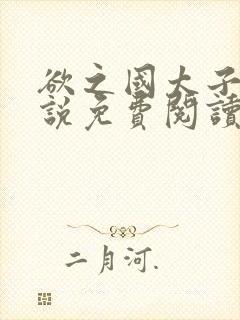 欲之國大子
說免費閱讀
二月河.